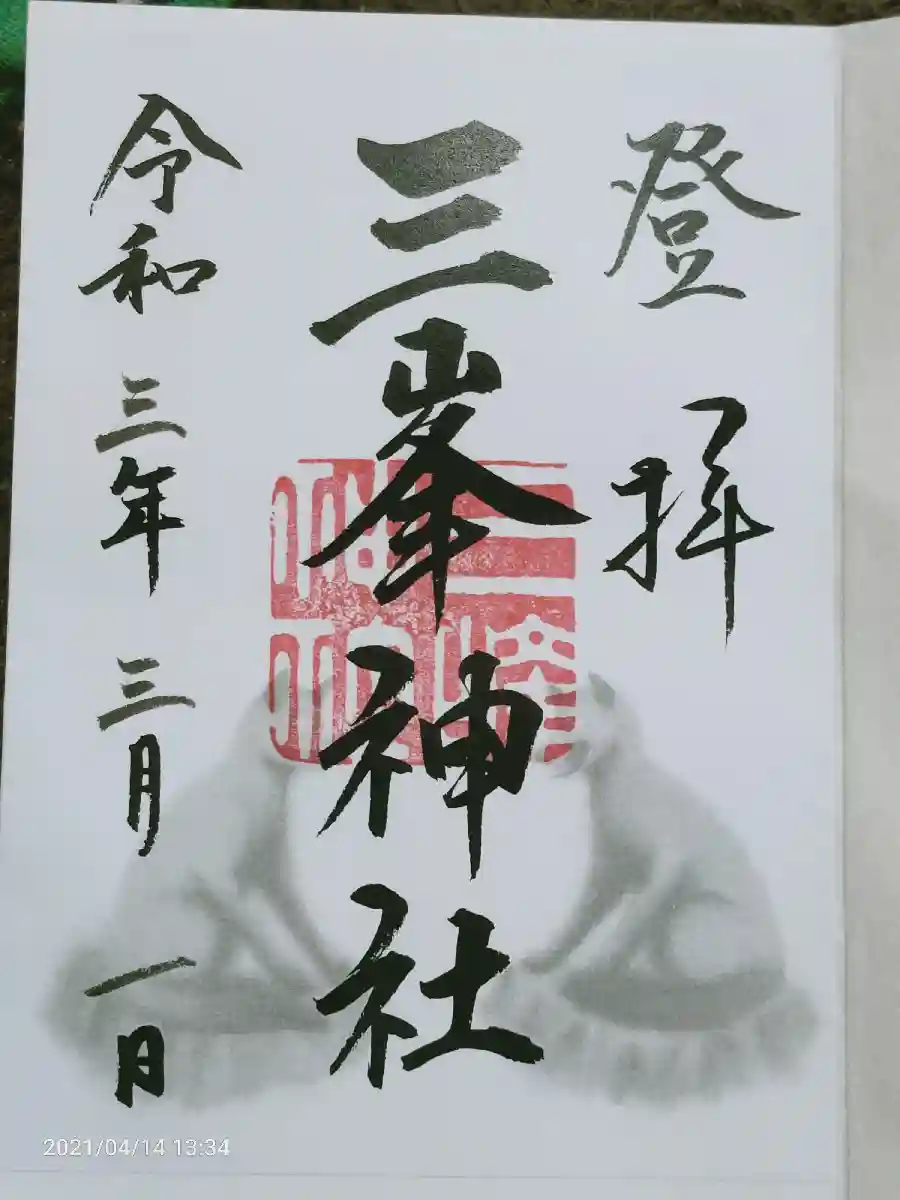 登拝
三峯神社
令和三年三月一日
2021/04/14 13:34